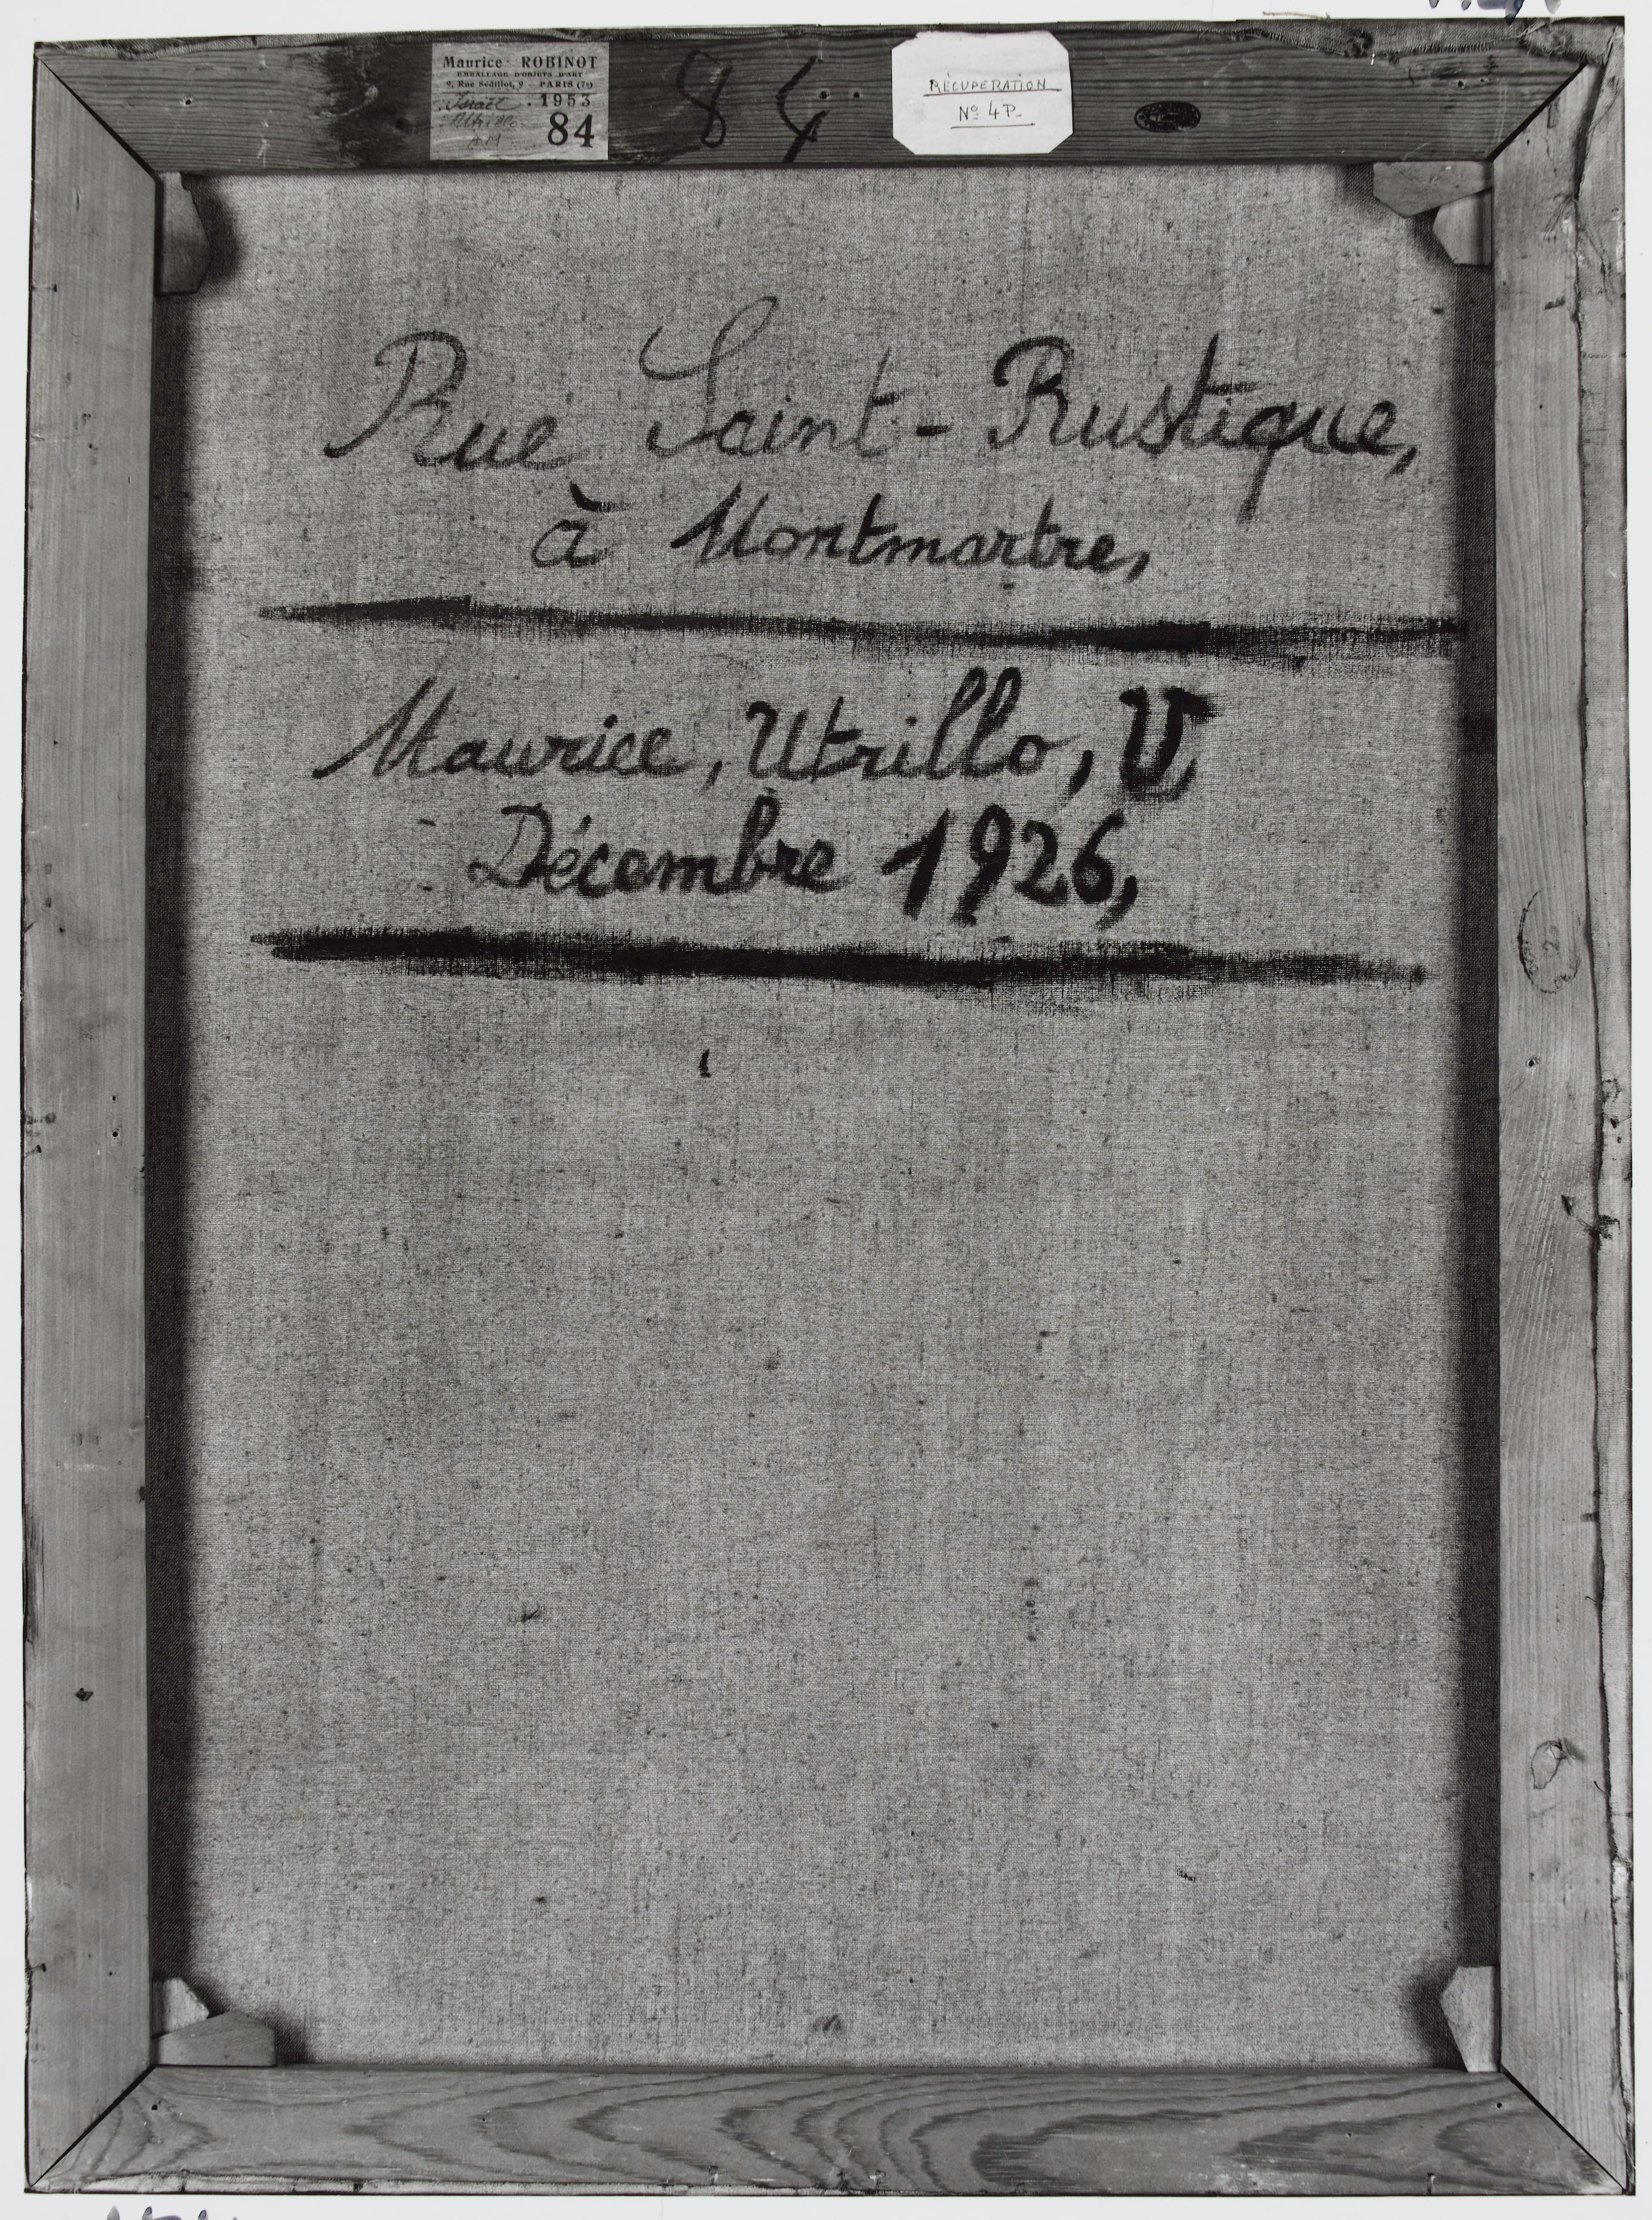 Maurice ROBINOT
EMBALLAGE D'OBJETS D'ART
9, Rue Sédillot, 9 - PARIS (7e)
Israël 1953
Utrillo
84
84
RÉCUPERATION
Nº 4P-
Rue Saint-Rustique,
à Montmartre,
Maurice, Utrillo, V
Décembre 1926,